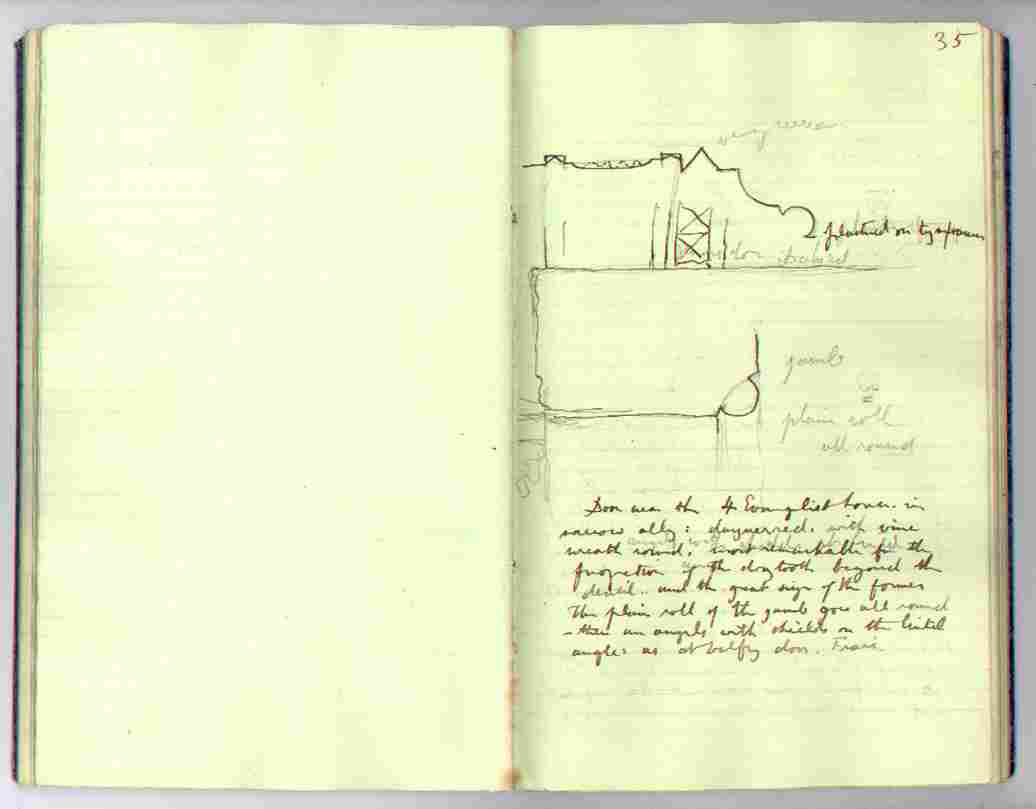 35
very
plastered on
jamb
plain roll
all round
Door near the 4 Evangelist tower. in
narrow ally: daguerred. with vine
wreath round. most remarkable for the
projection of the dogtooth beyond the
dentil.. and the great size of the former
The plain roll of the jamb goes all round
- there are angels with shields on the lintel
angle: as at belfry door. Frari